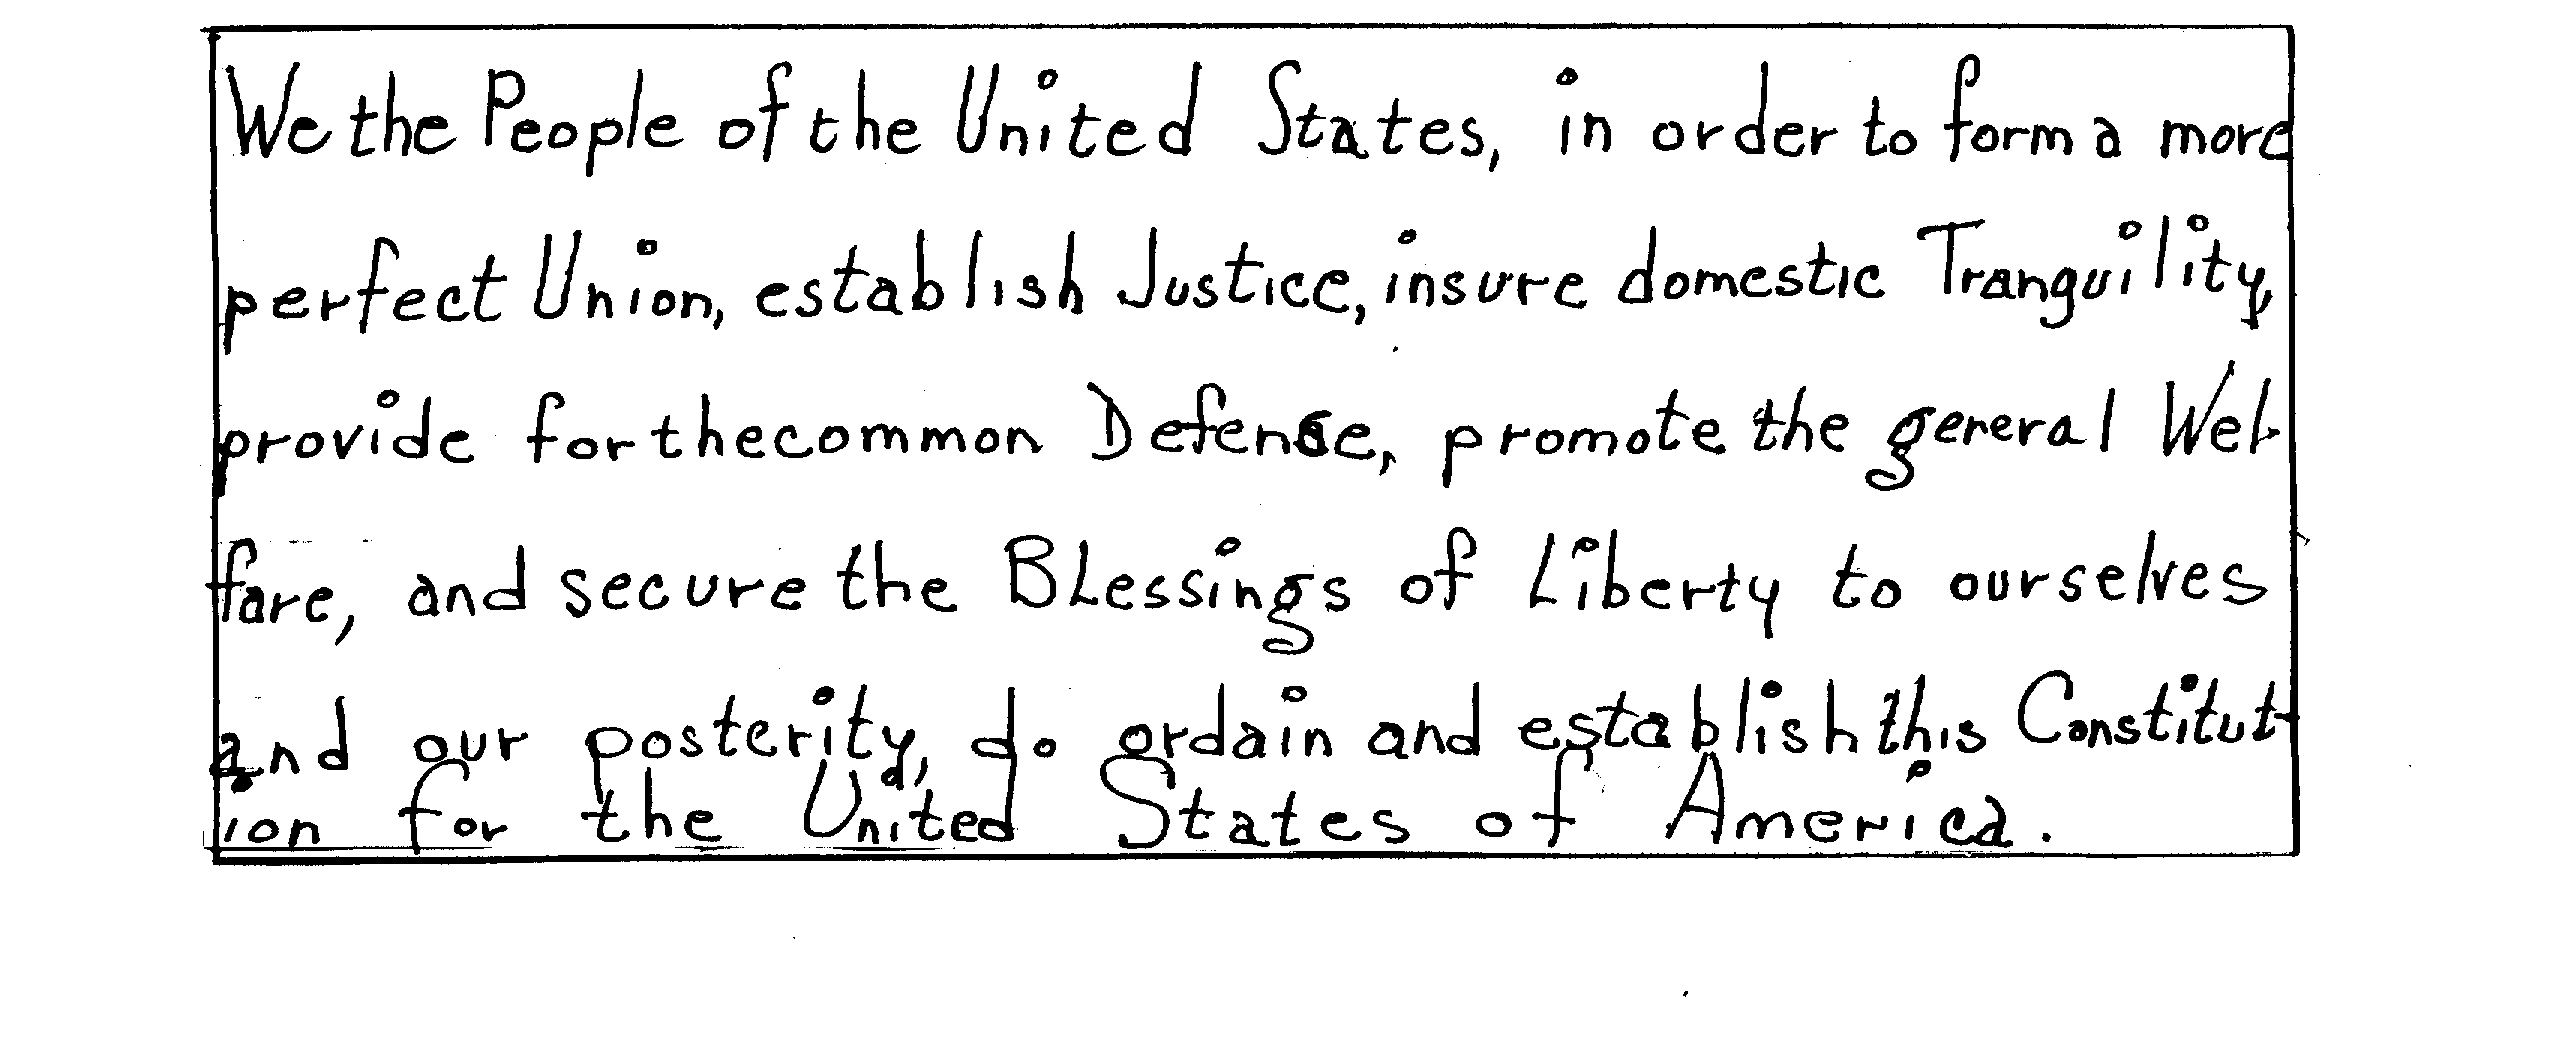 We the People of the United States, in order to form a more
perfect Union, establish Justice, insure domestic Tranquility,
provide for the common Defense, promote the general Wel-
fare, and secure the Blessings of Liberty to ourselves
and our posterity, do ordain and establish this Constitut-
ion for the United States of America.